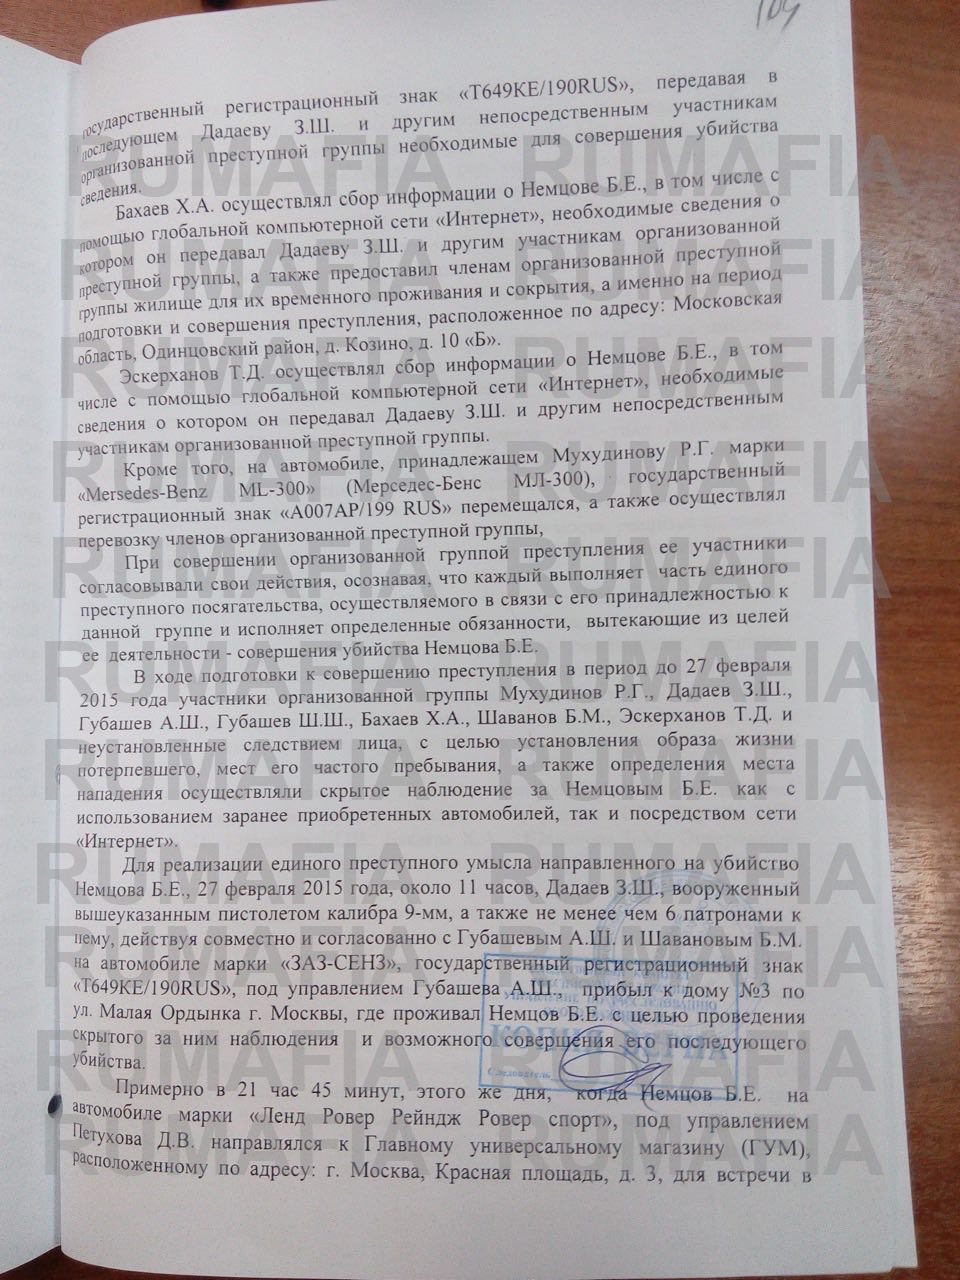 104
государственный регистрационный знак «Т649КЕ/190RUS», передавая в
последующем Дадаеву З.Ш. и другим непосредственным участникам
организованной преступной группы необходимые для совершения убийства
сведения.
Бахаев Х.А. осуществлял сбор информации о Немцове Б.Е., в том числе с
помощью глобальной компьютерной сети «Интернет», необходимые сведения о
котором он передавал Дадаеву З.Ш. и другим участникам организованной
преступной группы, а также предоставил членам организованной преступной
группы жилище для их временного проживания и сокрытия, а именно на период
подготовки и совершения преступления, расположенное по адресу: Московская
область, Одинцовский район, д. Козино, д. 10 «Б».
Эскерханов Т.Д. осуществлял сбор информации о Немцове Б.Е., в том
числе с помощью глобальной компьютерной сети «Интернет», необходимые
сведения о котором он передавал Дадаеву З.Ш. и другим непосредственным
участникам организованной преступной группы.
Кроме того, на автомобиле, принадлежащем Мухудинову Р.Г. марки
«Mersedes-Benz ML-300» (Мерседес-Бенс МЛ-300), государственный
регистрационный знак «А007АР/199 RUS» перемещался, а также осуществлял
перевозку членов организованной преступной группы,
При совершении организованной группой преступления ее участники
согласовывали свои действия, осознавая, что каждый выполняет часть единого
преступного посягательства, осуществляемого в связи с его принадлежностью к
данной группе и исполняет определенные обязанности, вытекающие из целей
ее деятельности - совершения убийства Немцова Б.Е.
В ходе подготовки к совершению преступления в период до 27 февраля
2015 года участники организованной группы Мухудинов Р.Г., Дадаев З.Ш.,
Губашев А.Ш., Губашев Ш.Ш., Бахаев Х.А., Шаванов Б.М., Эскерханов Т.Д. и
неустановленные следствием лица, с целью установления образа жизни
потерпевшего, мест его частого пребывания, а также определения места
нападения осуществляли скрытое наблюдение за Немцовым Б.Е. как с
использованием заранее приобретенных автомобилей, так и посредством сети
«Интернет».
Для реализации единого преступного умысла направленного на убийство
Немцова Б.Е., 27 февраля 2015 года, около 11 часов, Дадаев З.Ш., вооруженный
вышеуказанным пистолетом калибра 9-мм, а также не менее чем 6 патронами к
нему, действуя совместно и согласованно с Губашевым А.Ш. и Шавановым Б.М.
на автомобиле марки «ЗАЗ-СЕНЗ», государственный регистрационный знак
«Т649КЕ/190RUS», под управлением Губашева А.Ш., прибыл к дому №3 по
ул. Малая Ордынка г. Москвы, где проживал Немцов Б.Е. с целью проведения
скрытого за ним наблюдения и возможного совершения его последующего
убийства.
КОПИЯ ВЕРНА
Следователь
Примерно в 21 час 45 минут, этого же дня, когда Немцов Б.Е. на
автомобиле марки «Ленд Ровер Рейндж Ровер спорт», под управлением
Петухова Д.В. направлялся к Главному универсальному магазину (ГУМ),
расположенному по адресу: г. Москва, Красная площадь, д. 3, для встречи в
RUMAFIA RUMAFIA
RUMAFIA RUMAFIA
RUMAFIA RUMAFIA
RUMAFIA RUMAFIA
RUMAFIA RUMAFIA
RUMAFIA RUMAFIA
RUMAFIA RUMAFIA
RUMAFIA RUMAFIA
RUMAFIA RUMAFIA
RUMAFIA RUMAFIA
RUMAFIA RUMAFIA